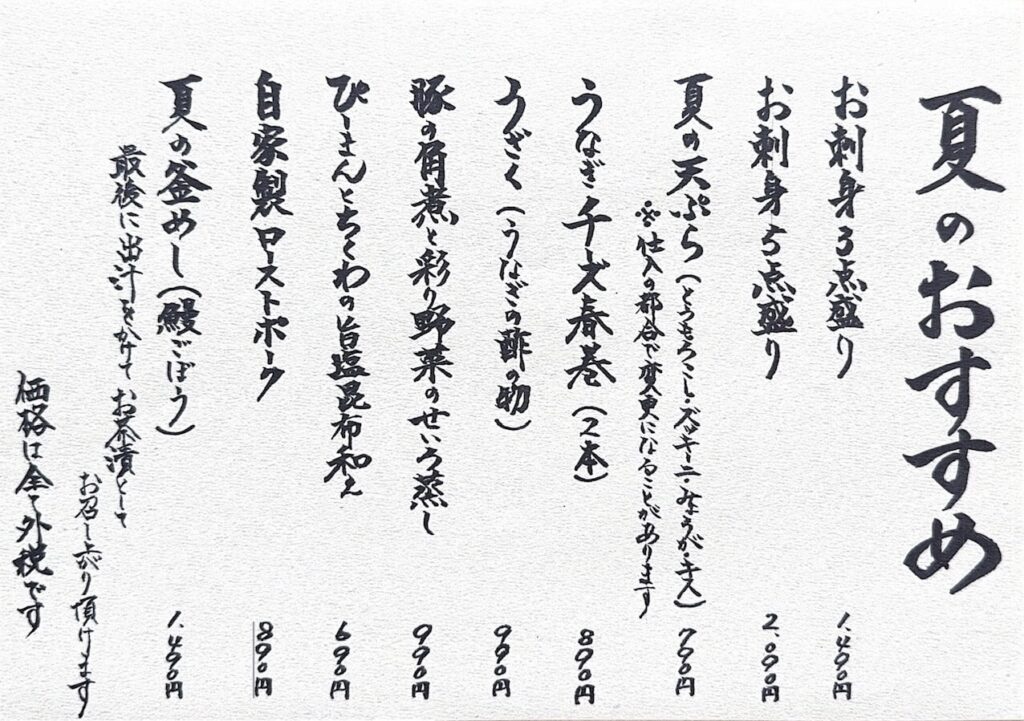 夏のおすすめ
お刺身3点盛り 1.490円
お刺身5点盛り 2.090円
夏の天ぷら（とうもろこし・ズッキーニ・みょうが・キス） 790円
※仕入の都合で変更になることがあります
うなぎチーズ春巻（2本） 890円
うざく（うなぎの酢の物） 990円
豚の角煮と彩り野菜のせいろ蒸し 990円
ぴーまんとちくわの旨塩昆布和え 690円
自家製ローストポーク 890円
夏の釜めし（鰻ごぼう） 1.490円
最後に出汁をかけてお茶漬として
お召し上がり頂けます
価格は全て外税です